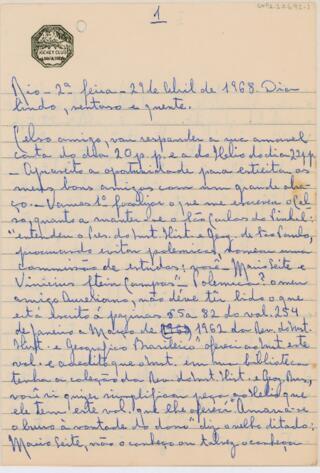 1
JOCKEY CLUB
Rio - 2ª feira - 29 de Abril de 1968. Dia
lindo, ventoso e quente.
Celso amigo, vou responder a sua amavel
carta do dia 20 p.p. e a do Helio do dia 23 p.p.
- Aproveito a oportunidade para estreitar os
meus bons amigos com um grande abra-
ço. - Vamos 1º focalizar o que me escreveu o Cel-
so, quanto a manter-se o São Carlos do Pinhal:
"entendeu o Pres. do Inst. Hist. e Geog. de São Paulo,
procurando evitar polemicas, nomear uma
commissão de estudos; José Maio Leite e
Vinicius Stein Campos". Polemica? O meu
amigo Aureliano, não déve ter lido o que
está escrito á paginas 55 a 82 do vol. 254
de Janeiro a Março de 1962 da Rev. do Inst.
Hist. e Geografico Brasileiro" ofereci ao Inst. este
vol. e acredito que o Inst. em sua biblioteca
tenha a coleção da Rev. do Inst. Hist. e Geog. Bras.,
ele tem este vol. que lhe ofereci. "Amarra-se
o burro á vontade do dono" diz o velho ditado;
Maio Leite, não o conheço ou talvez o conheça